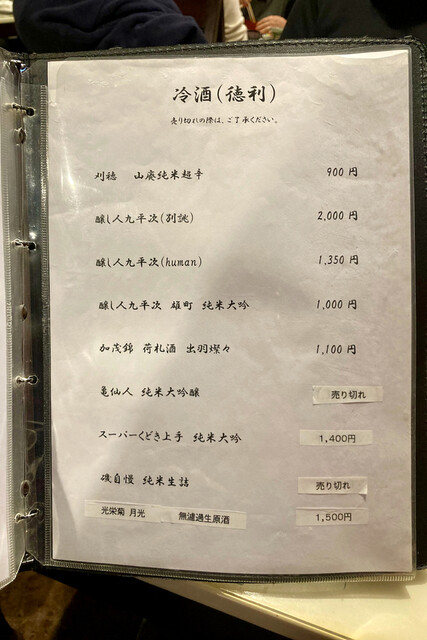 冷酒(徳利)
売り切れの際は、ご了承ください。
刈穂 山廃純米超辛 900 円
醸し人九平次(別誂) 2,000 円
醸し人九平次(human) 1,350 円
醸し人九平次 雄町 純米大吟 1,000 円
加茂錦 荷札酒 出羽燦々 1,100 円
亀仙人 純米大吟醸 売り切れ
スーパーくどき上手 純米大吟 1,400円
磯自慢 純米生詰 売り切れ
光栄菊 月光 無濾過生原酒 1,500円